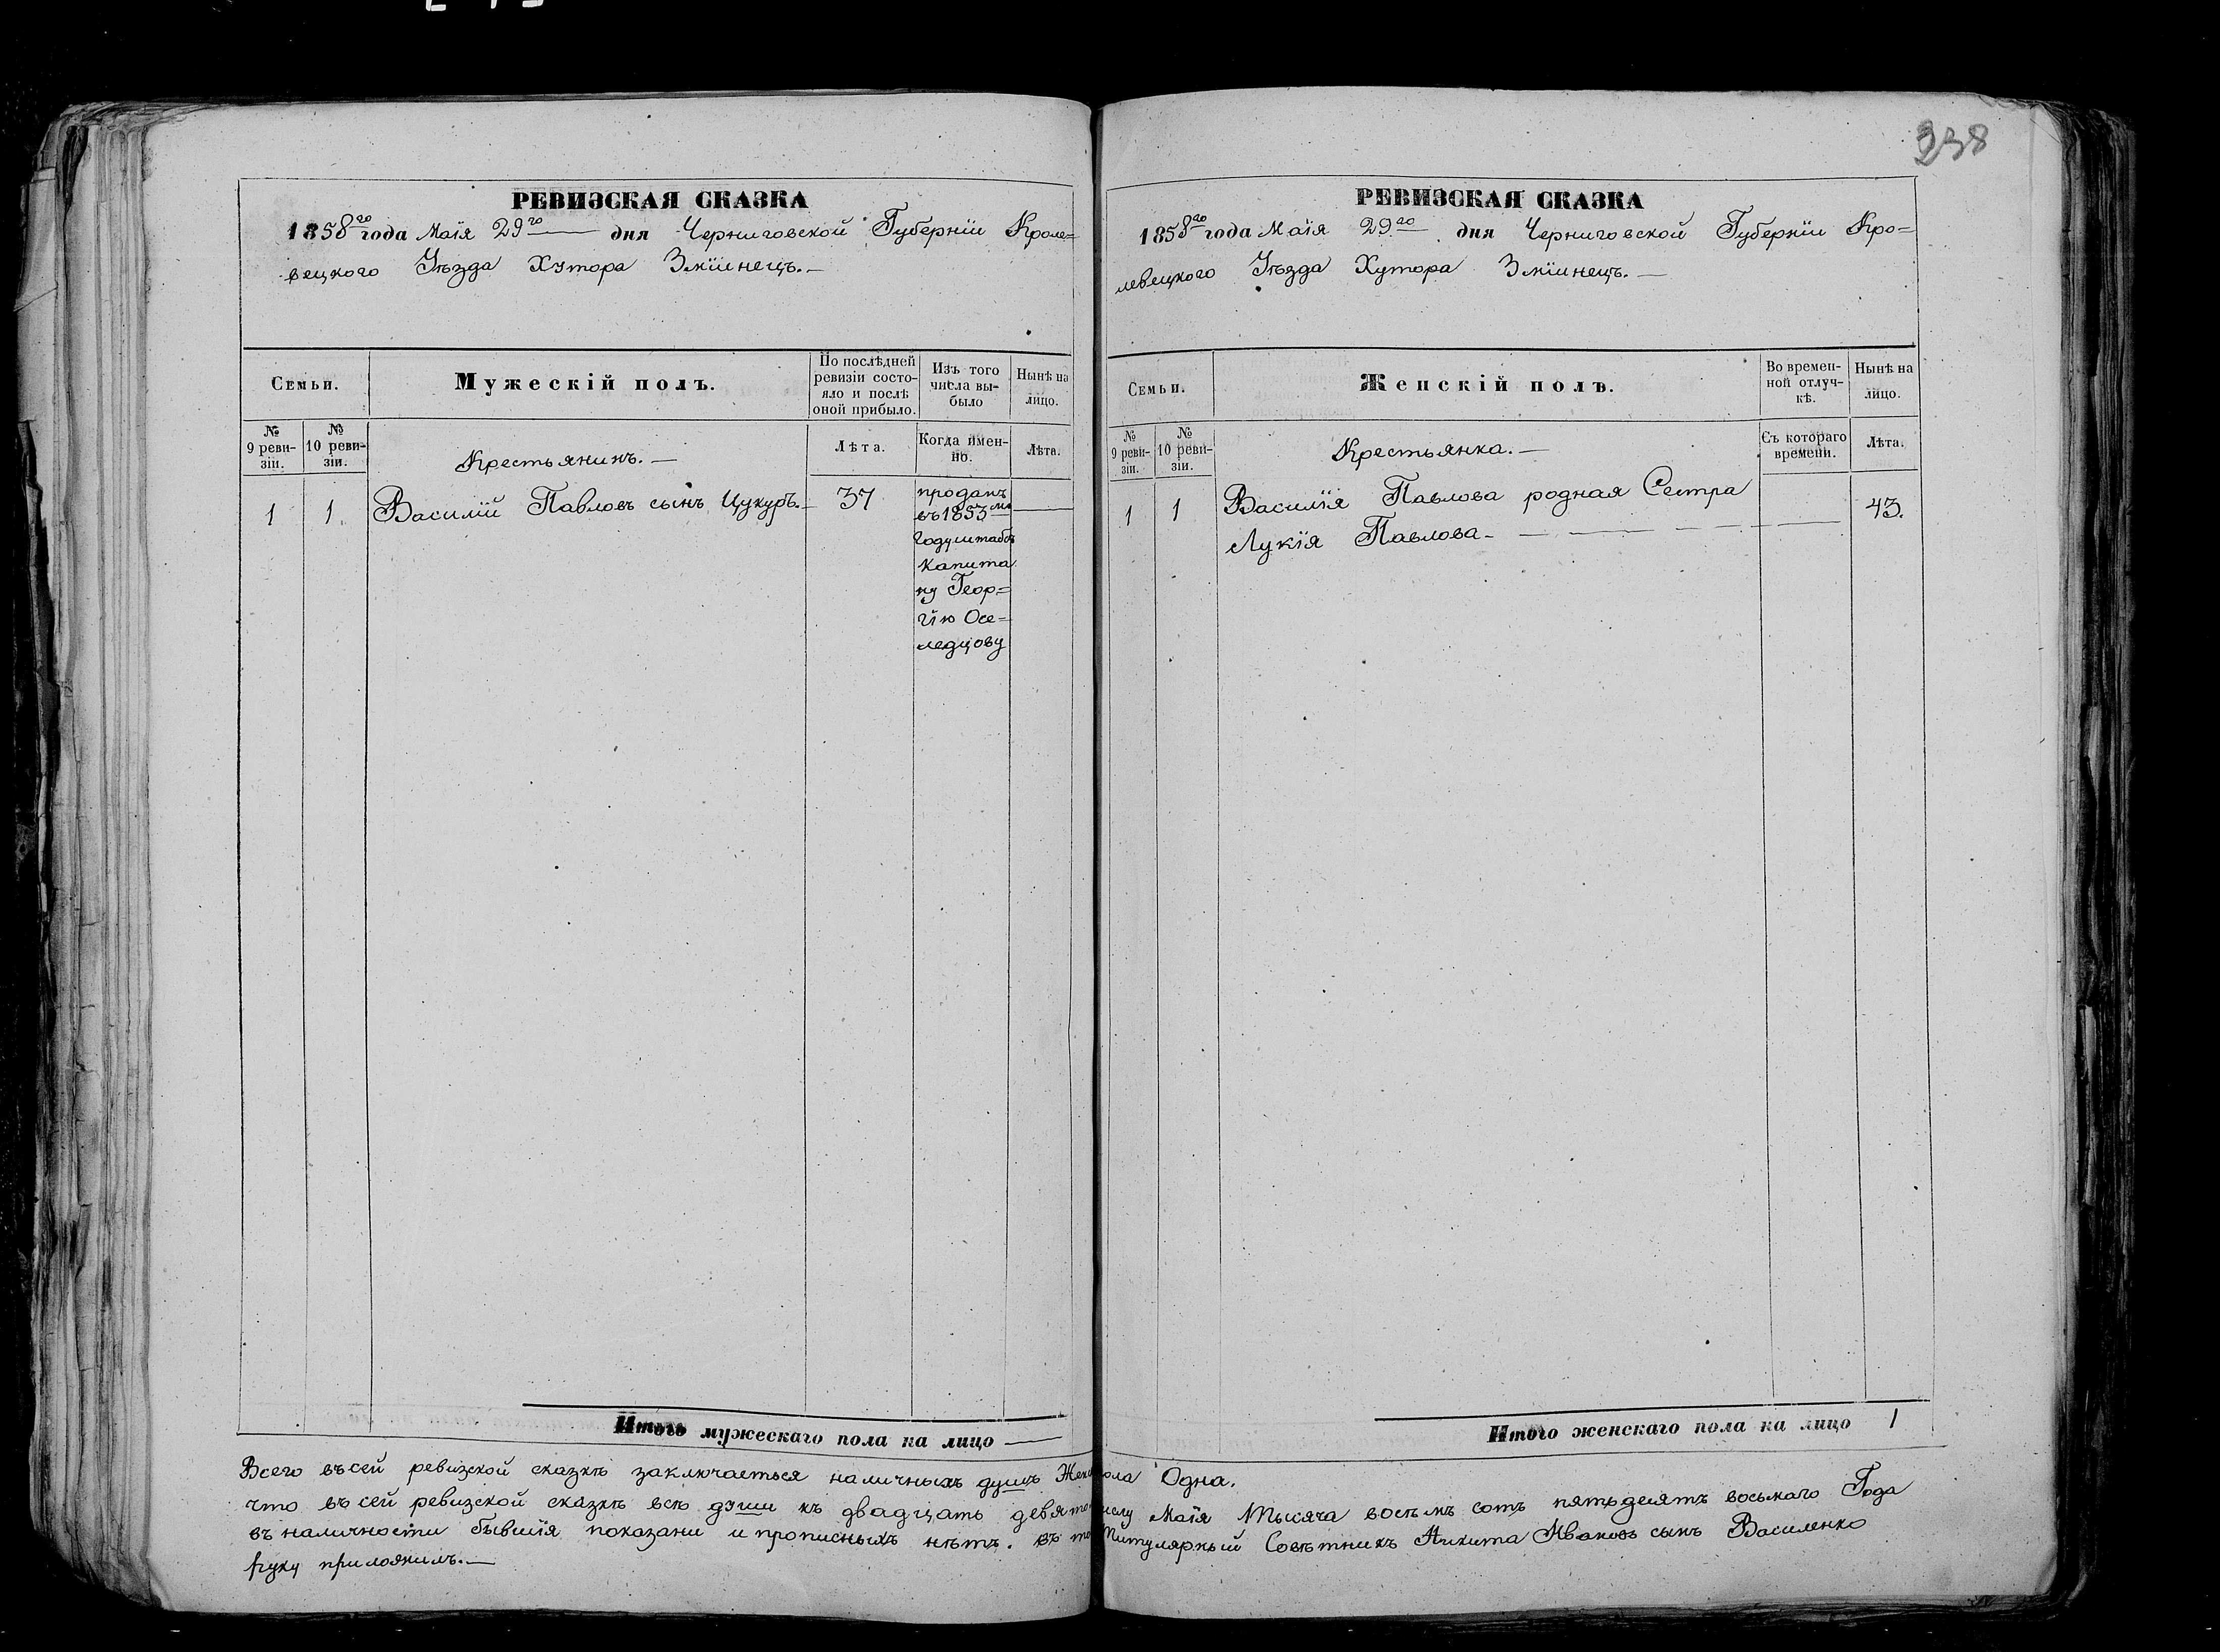 238
РЕВИЗСКАЯ СКАЗКА
1858го года Маія 29го дня Черниговской Губерніи Кроле=
вецкого Уѣзда Хутора Зміинецъ.—
Семьи.
Мужескій полъ.
По послѣдней
ревизіи состо-
яло и послѣ
оной прибыло.
Изъ того
числа вы-
было
Нынѣ на
лицо.
№
9 реви-
зіи.
№
10 реви-
зіи.
Крестьянинъ.—
Лѣта.
Когда имен-
но.
Лѣта.
1 1 Василій Павловъ сынъ Цукуръ.— 37
проданъ
въ 1853мъ
Году штабсъ
капита
ну Геор=
гію Осе=
ледцову
Итого мужескаго пола на лицо —
РЕВИЗСКАЯ СКАЗКА
1858го года Маія 29го дня Черниговской Губерніи Кро=
левецкого Уѣзда Хутора Зміинецъ.—
Семьи.
Женскій полъ.
Во времен-
ной отлуч-
кѣ.
Нынѣ на
лицо.
№
9 реви-
зіи.
№
10 реви-
зіи.
Крестьянка.—
Съ котораго
времени.
Лѣта.
1 1 Василія Павлова родная Сестра
Лукія Павлова— 43.
Итого женскаго пола на лицо 1
Всего въ сей ревизской сказкѣ заключаеться наличныхъ душъ Женс пола Одна.
что въ сей ревизской сказкѣ всѣ души къ двадцать девято числу Маія Тысяча восѣмъ сотъ пятьдесятъ восьмаго Года
въ наличности бывшія показани и прописныхъ нѣтъ. въ то Титулярный Совѣтникъ Никита Ивановъ сынъ Василенко
руку приложилъ.—